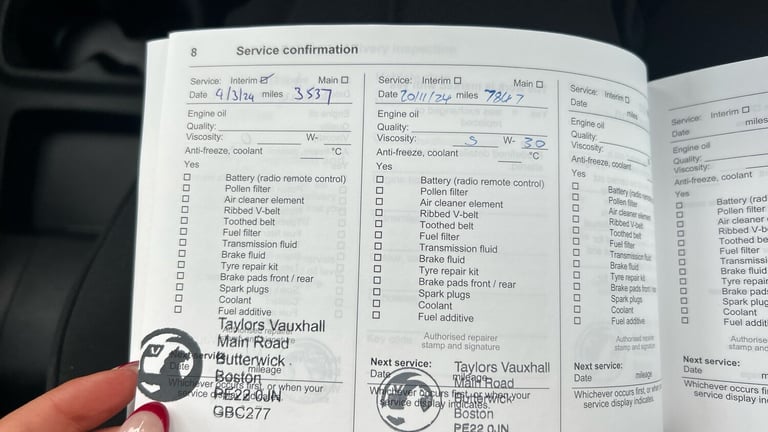 8 Service confirmation
Service: Interim Main
Date 4/3/24 miles 3537
Engine oil
Quality:
Viscosity: W-
Anti-freeze, coolant °C
Yes
Battery (radio remote control)
Pollen filter
Air cleaner element
Ribbed V-belt
Toothed belt
Fuel filter
Transmission fluid
Brake fluid
Tyre repair kit
Brake pads front / rear
Spark plugs
Coolant
Fuel additive
Taylors Vauxhall
Main Road
Butterwick.
Boston
PE22 0JN
GBC277
Next service
Date mileage
Whichever occurs first, or when your
service display indicates.
Service: Interim Main
Date 20/11/24 miles 7847
Engine oil
Quality:
Viscosity: 5 W- 30
Anti-freeze, coolant °C
Yes
Battery (radio remote control)
Pollen filter
Air cleaner element
Ribbed V-belt
Toothed belt
Fuel filter
Transmission fluid
Brake fluid
Tyre repair kit
Brake pads front / rear
Spark plugs
Coolant
Fuel additive
Authorised repairer
stamp and signature
Next service:
Date mileage
Whichever occurs first, or when your
service display indicates.
Taylors Vauxhall
Main Road
Butterwick
Boston
PE22 0JN
Service: Interim
Date
Engine oil
Quality:
Viscosity:
Anti-freeze, coolant
Yes
Battery (radio remote
Pollen filter
Air cleaner element
Ribbed V-belt
Toothed belt
Fuel filter
Transmission fluid
Brake fluid
Tyre repair kit
Brake pads front
Spark plugs
Coolant
Fuel additive
Authorised repairer
stamp and signature
Next service:
Date mileage
Whichever occurs first, or when
service display indicates.
Service: Interim
Date miles
Engine oil
Quality:
Viscosity:
Anti-freeze, coolant
Yes
Battery (rad
Pollen filter
Air cleaner
Ribbed V-b
Toothed be
Fuel filter
Transmissi
Brake fluid
Tyre repair
Brake pads
Spark plug
Coolant
Fuel additi
Authorise
stamp an
Next service:
Date m
Whichever occurs fi
service display indic